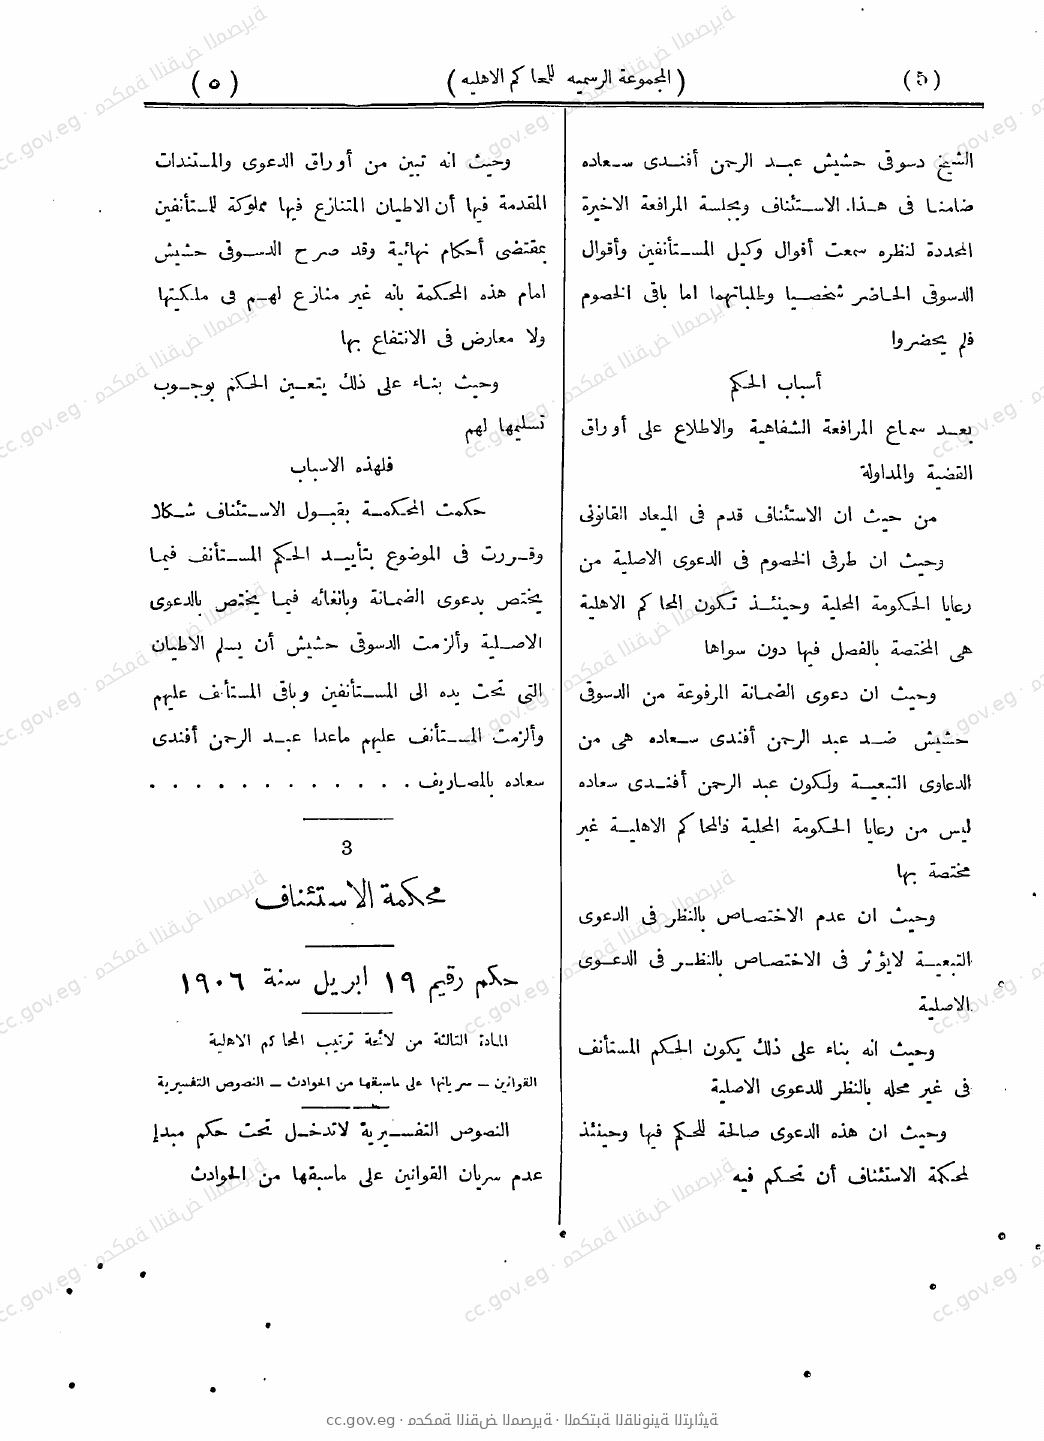 (٥) (المجموعة الرسميه للمحاكم الاهليه) (٥)
الشيخ دسوقى حشيش عبد الرحمن أفندى سعاده
ضامنا فى هذا. الاستئناف وبجلسة المرافعة الاخيرة
المحددة لنظره سمعت أقوال وكيل المستأنفين وأقوال
الدسوقى الحاضر شخصيا وطلباتهما اما باقى الخصوم
فلم يحضروا
أسباب الحكم
بعد سماع المرافعة الشفاهية والاطلاع على أوراق
القضية والمداولة
من حيث ان الاستئناف قدم فى الميعاد القانونى
وحيث ان طرفى الخصوم فى الدعوى الاصلية من
رعايا الحكومة المحلية وحينئذ تكون المحاكم الاهلية
هى المختصة بالفصل فيها دون سواها
وحيث ان دعوى الضمانة المرفوعة من الدسوقى
حشيش ضد عبد الرحمن أفندى سعاده هى من
الدعاوى التبعية ولكون عبد الرحمن أفندى سعاده
ليس من رعايا الحكومة المحلية فالمحاكم الاهلية غير
مختصة بها
وحيث ان عدم الاختصاص بالنظر فى الدعوى
التبعية لايؤثر فى الاختصاص بالنظر فى الدعوى
الاصلية
وحيث انه بناء على ذلك يكون الحكم المستأنف
فى غير محله بالنظر للدعوى الاصلية
وحيث ان هذه الدعوى صالحة للحكم فيها وحينئذ
لمحكمة الاستئناف أن تحكم فيه
وحيث انه تبين من أوراق الدعوى والمستندات
المقدمة فيها أن الاطيان المتنازع فيها مملوكة للمستأنفين
بمقتضى أحكام نهائية وقد صرح الدسوقى حشيش
امام هذه المحكمة بانه غير منازع لهم فى ملكيتها
ولا معارض فى الانتفاع بها
وحيث بناء على ذلك يتعين الحكم بوجوب
تسليمها لهم
فلهذه الاسباب
حكمت المحكمة بقبول الاستئناف شكلا
وقررت فى الموضوع بتأييد الحكم المستأنف فيما
يختص بدعوى الضمانة وبالغائه فيما يختص بالدعوى
الاصلية وألزمت الدسوقى حشيش أن يسلم الاطيان
التى تحت يده الى المستأنفين وباقى المستأنف عليهم
وألزمت المستأنف عليهم ماعدا عبد الرحمن أفندى
سعاده بالمصاريف . . . . . . . . . . . .
3
محكمة الاستئناف
حكم رقيم ١٩ ابريل سنة ١٩٠٦
المادة الثالثة من لائحة ترتيب المحاكم الاهلية
القوانين ــ سريانها على ماسبقها من الحوادث ــ النصوص التفسيرية
النصوص التفسيرية لاتدخل تحت حكم مبدإ
عدم سريان القوانين على ماسبقها من الحوادث
cc.gov.eg · محكمة النقض المصرية · المكتبة القانونية التراثية